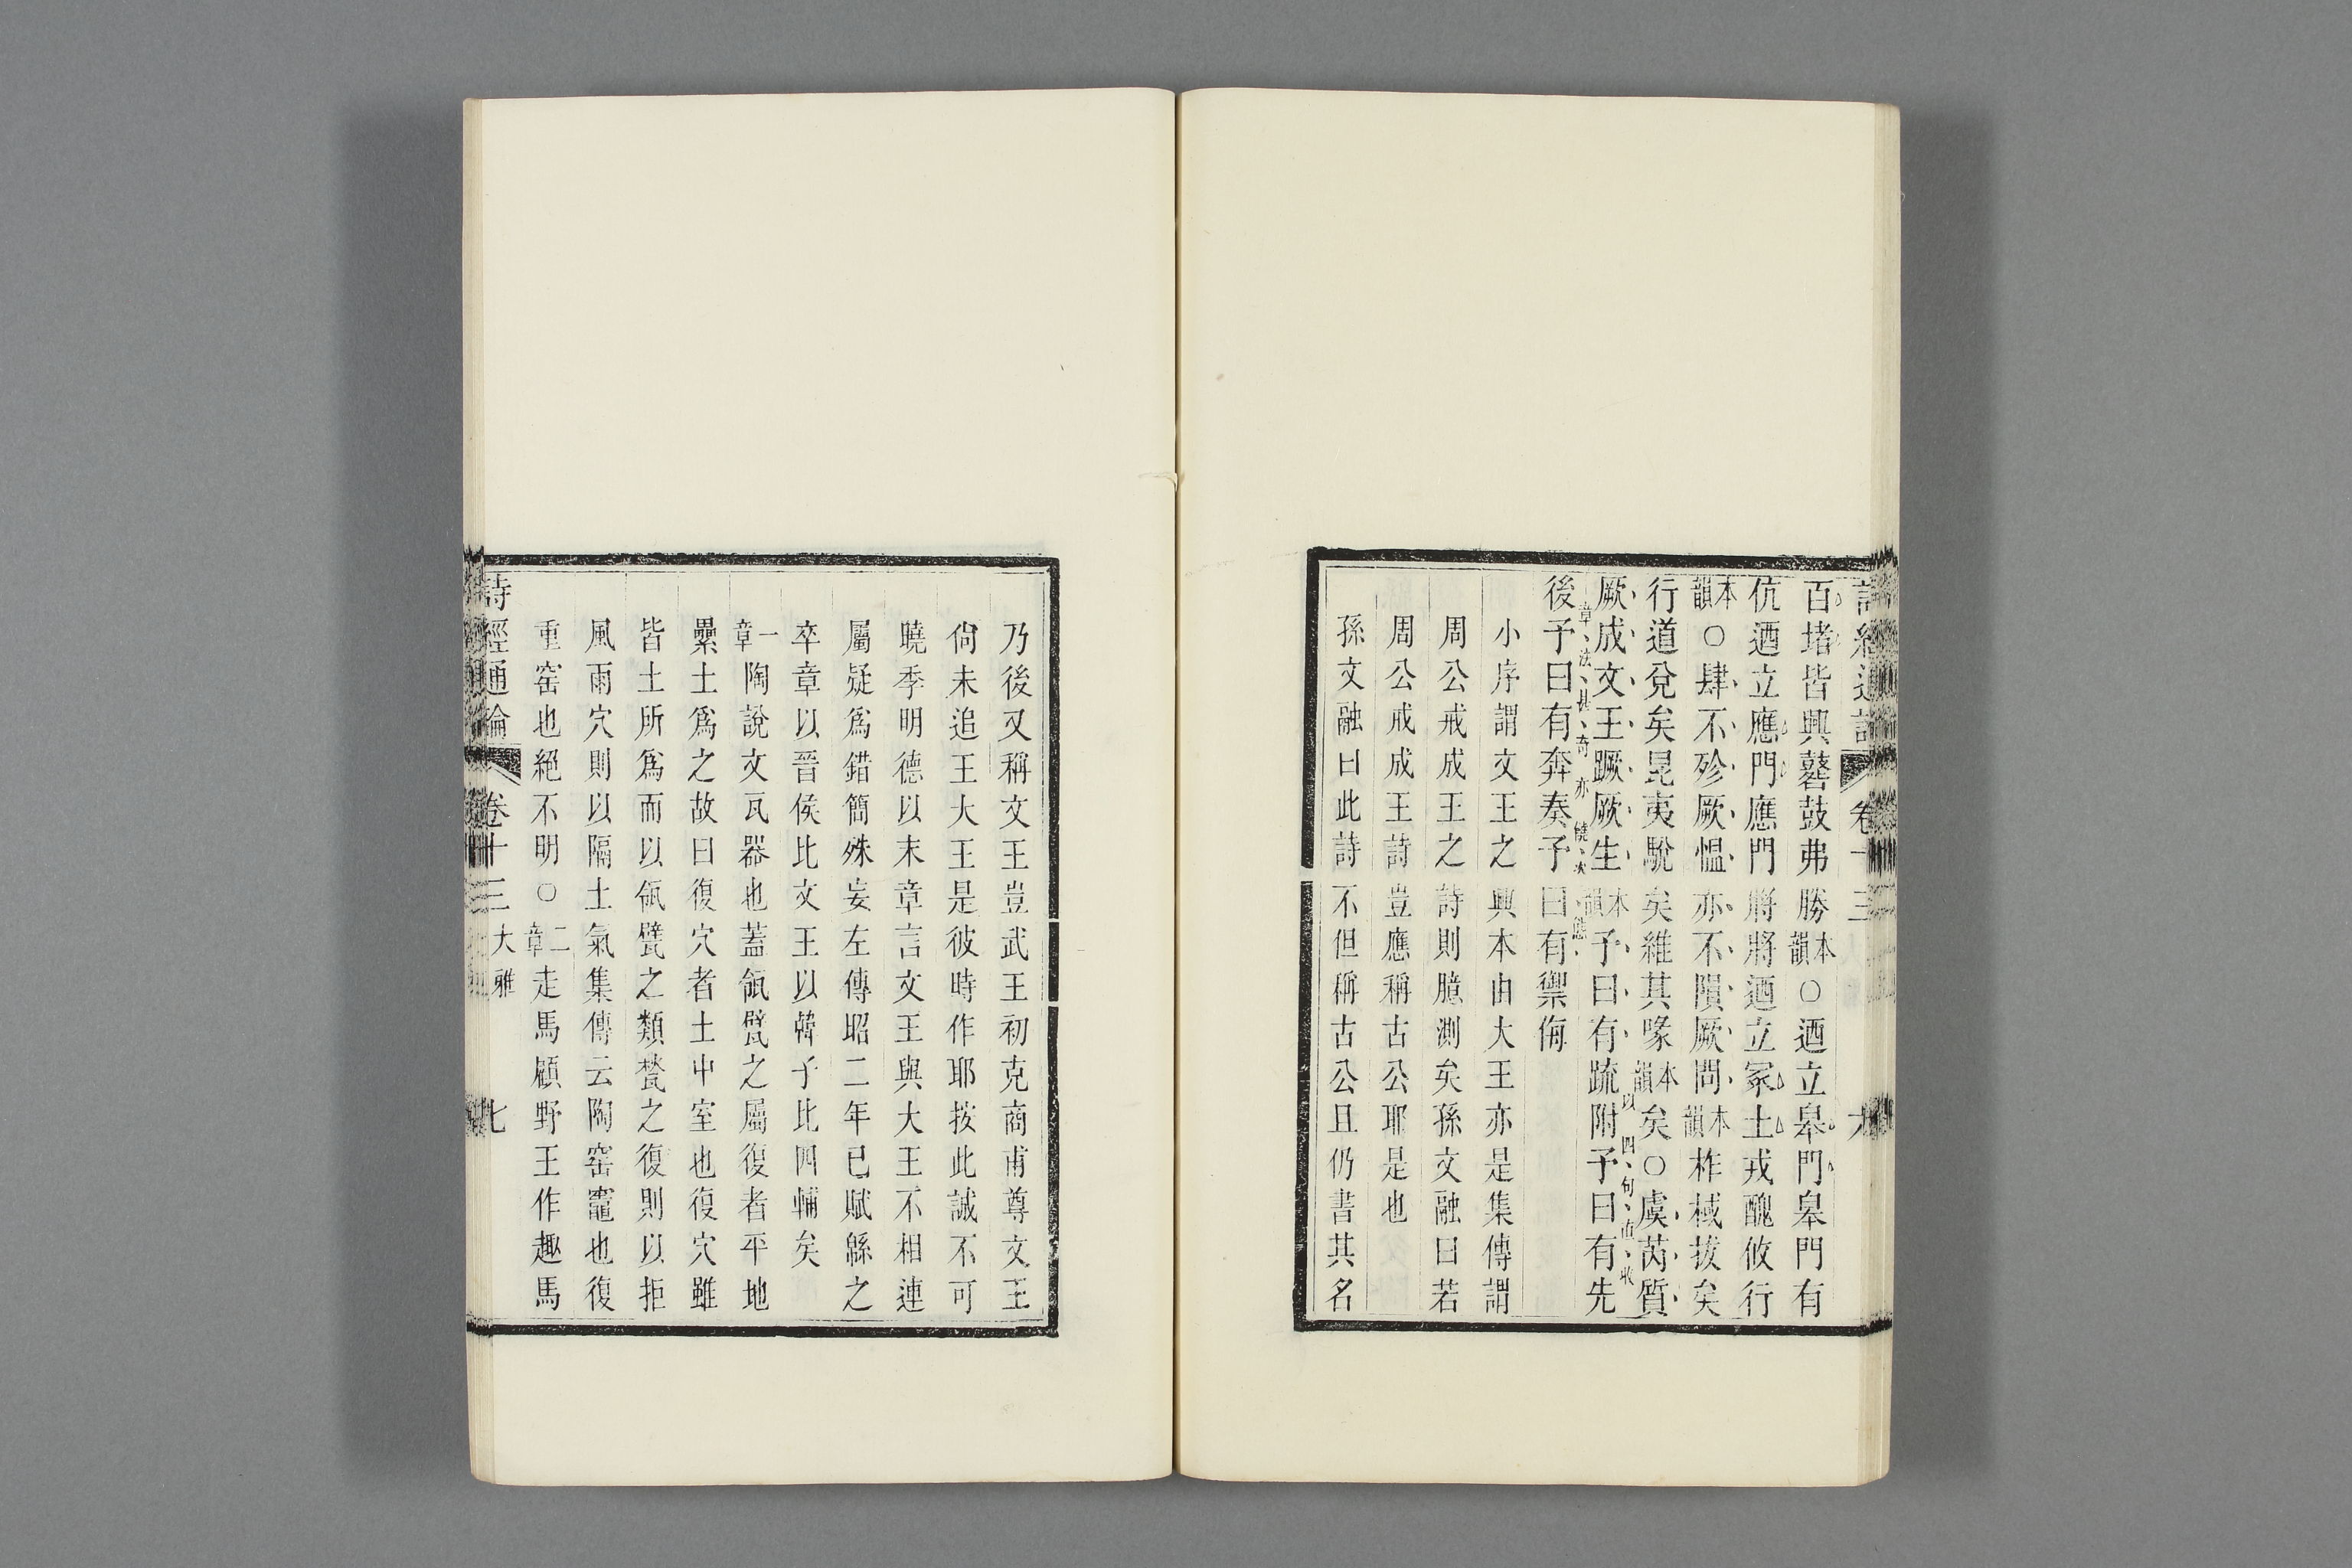 百堵皆興鼛鼓弗勝本韻○迺立皋門皋門有
伉迺立應門應門將將迺立冢土戎醜攸行
本韻○肆不殄厥慍亦不隕厥問本韻柞棫拔矣
行道兌矣昆夷駾矣維其喙本韻矣○虞芮質
厥成文王蹶厥生本韻予曰有疏附予曰有先
以四句直收
後予曰有奔奏予曰有禦侮
章法甚奇亦
小序謂文王之興本由大王亦是集傳謂
周公戒成王之詩則臆測矣孫文融曰若
周公戒成王詩豈應稱古公耶是也
孫文融曰此詩不但稱古公且仍書其名
乃後又稱文王豈武王初克商甫尊文王
尙未追王大王是彼時作耶按此誠不可
曉季明德以末章言文王與大王不相連
屬疑爲錯簡殊妄左傳昭二年已賦緜之
卒章以晉侯比文王以韓子比四輔矣
一章陶說文瓦器也蓋瓴甓之屬復者平地
纍土爲之故曰復穴者土中室也復穴雖
皆土所爲而以瓴甓之類甃之復則以拒
風雨穴則以隔土氣集傳云陶窑竈也復
重窑也絕不明○二章走馬顧野王作趣馬
詩經通論 卷十三 大雅 七